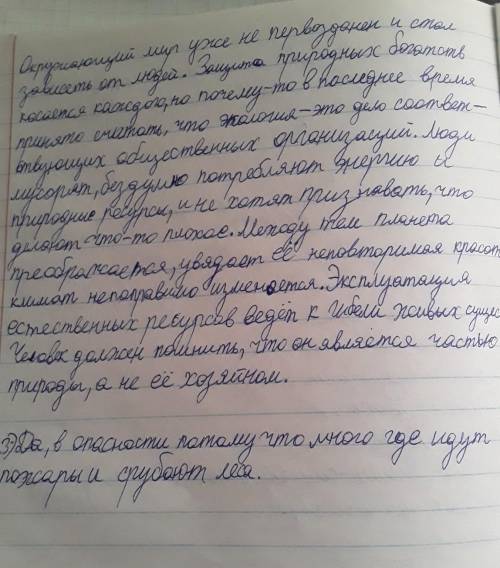 Окружающий мир уже не первозданен и стал
зависеть от людей. Защита природных богатств
касается каждого, но почему-то в последнее время
принято считать, что экология-это дело соответ-
ствующих общественных организаций. Люди
мусорят, бездумно потребляют энергию и
природные ресурсы, и не хотят признавать, что
делают что-то плохое. Между тем планета
преображается, увядает её неповторимая красот
климат непоправимо изменяется. Эксплуатация
естественных ресурсов ведёт к гибели живых сущес
Человек должен помнить, что он является частью
природы, а не её хозяином.
3) Да, в опасности потому что много где идут
пожары и срубают леса.